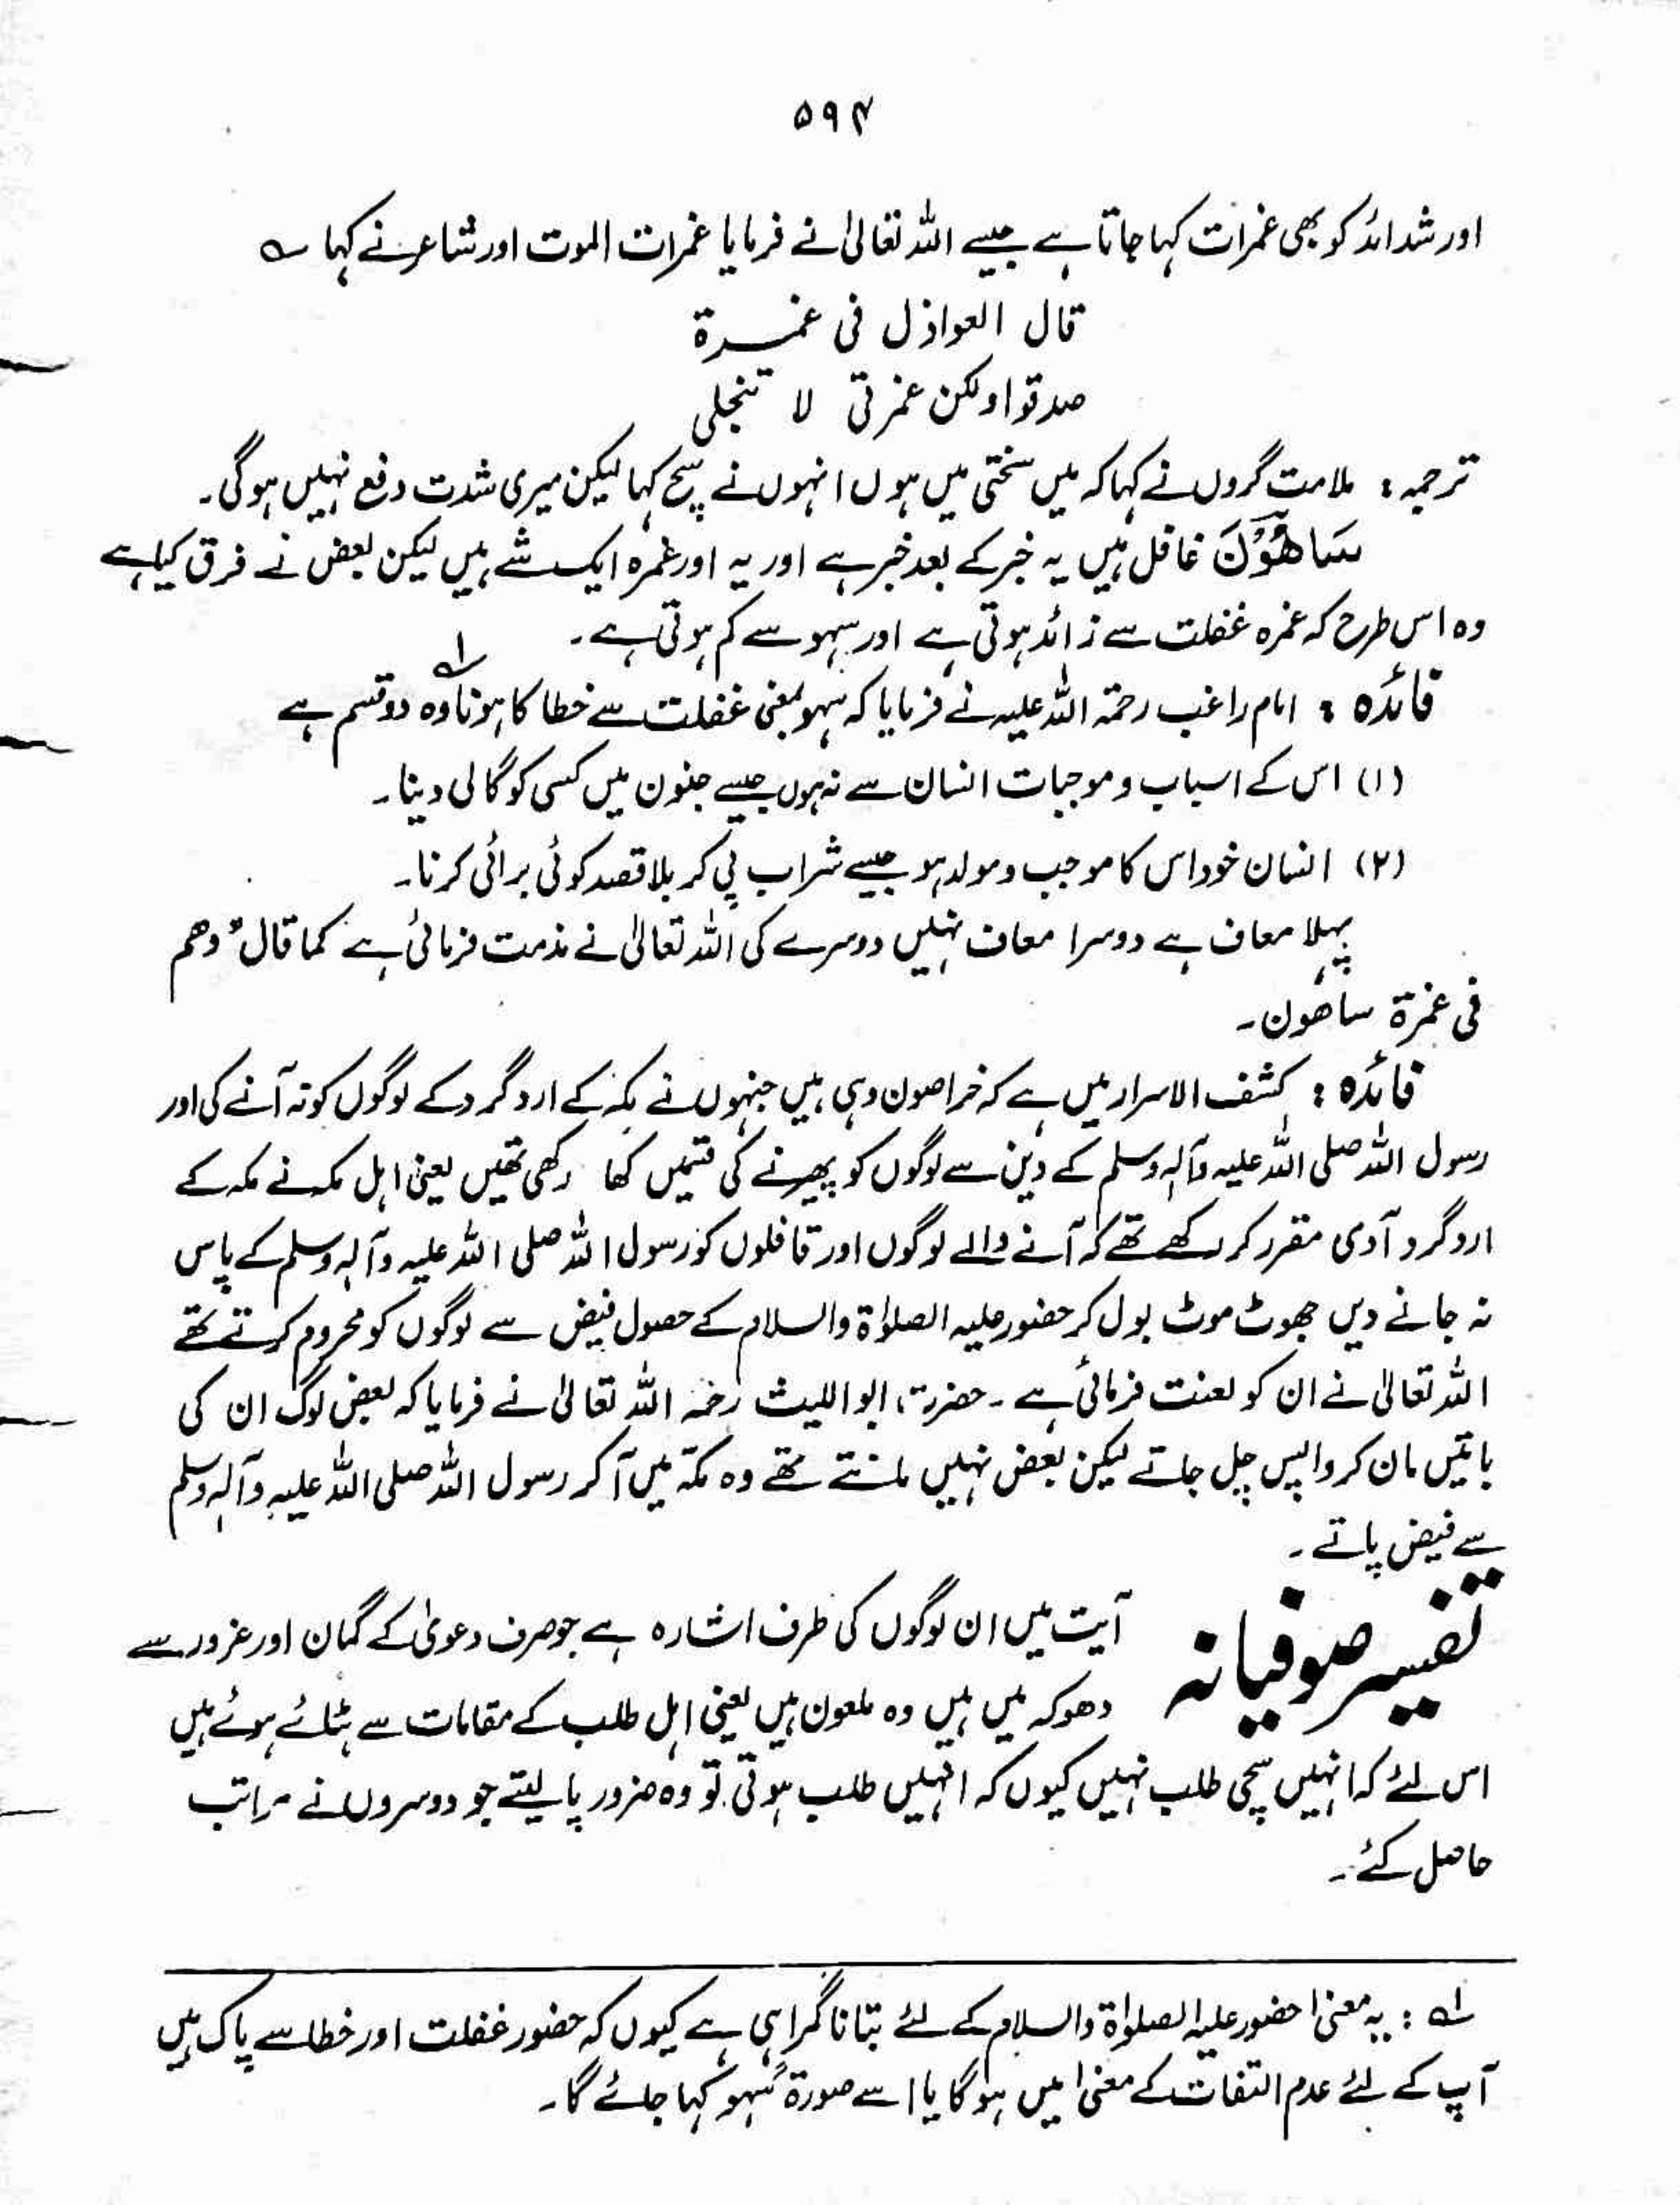 ۵۹۴
اور شدائد کو بھی غمرات کہا جاتا ہے جیسے اللہ تعالیٰ نے فرمایا غمرات الموت اور شاعر نے کہا ؎
قال العواذل فی غمرة
صدقوا ولکن غمرتی لا تنجلی
ترجمہ: ملامت گروں نے کہا کہ میں سختی میں ہوں انہوں نے سچ کہا لیکن میری شدت دفع نہیں ہوگی۔
سَاهُوْنَ غافل ہیں یہ خبر کے بعد خبر ہے اور یہ اور غمرہ ایک شے ہیں لیکن بعض نے فرق کیا ہے
وہ اس طرح کہ غمرہ غفلت سے زائد ہوتی ہے اور سہو سے کم ہوتی ہے۔
فائدہ: امام راغب رحمۃ اللہ علیہ نے فرمایا کہ سہو بمعنی غفلت سے خطا کا ہونا ؎۱ وہ دو قسم ہے
(۱) اس کے اسباب و موجبات انسان سے نہ ہوں جیسے جنون میں کسی کو گالی دینا۔
(۲) انسان خود اس کا موجب و مولد ہو جیسے شراب پی کر بلا قصد کوئی برائی کرنا۔
پہلا معاف ہے دوسرا معاف نہیں دوسرے کی اللہ تعالیٰ نے مذمت فرمائی ہے کما قال "وھم
فی غمرة ساھون۔
فائدہ: کشف الاسرار میں ہے کہ خراصون وہی ہیں جنہوں نے مکہ کے ارد گرد کے لوگوں کو نہ آنے کی اور
رسول اللہ صلی اللہ علیہ وآلہ وسلم کے دین سے لوگوں کو پھیرنے کی قسمیں کھا رکھی تھیں یعنی اہل مکہ نے مکہ کے
ارد گرد آدمی مقرر کر رکھے تھے کہ آنے والے لوگوں اور قافلوں کو رسول اللہ صلی اللہ علیہ وآلہ وسلم کے پاس
نہ جانے دیں جھوٹ موٹ بول کر حضور علیہ الصلوٰۃ والسلام کے حصول فیض سے لوگوں کو محروم کرتے تھے
اللہ تعالیٰ نے ان کو لعنت فرمائی ہے۔ حضرت ابو اللیث رحمہ اللہ تعالیٰ نے فرمایا کہ بعض لوگ ان کی
باتیں مان کر واپس چل جاتے لیکن بعض نہیں مانتے تھے وہ مکہ میں آکر رسول اللہ صلی اللہ علیہ وآلہ وسلم
سے فیض پاتے۔
تفسیر صوفیانہ
آیت میں ان لوگوں کی طرف اشارہ ہے جو صرف دعویٰ کے گمان اور غرور سے
دھوکہ میں ہیں وہ ملعون ہیں یعنی اہل طلب کے مقامات سے ہٹائے ہوئے ہیں
اس لئے کہ انہیں سچی طلب نہیں کیوں کہ انہیں طلب ہوتی تو وہ ضرور پا لیتے جو دوسروں نے مراتب
حاصل کئے۔
؎۱: یہ معنیٰ حضور علیہ الصلوٰۃ والسلام کے لئے بتانا گمراہی ہے کیوں کہ حضور غفلت اور خطا سے پاک ہیں
آپ کے لئے عدم التفات کے معنیٰ میں ہوگا یا اسے صورۃً سہو کہا جائے گا۔